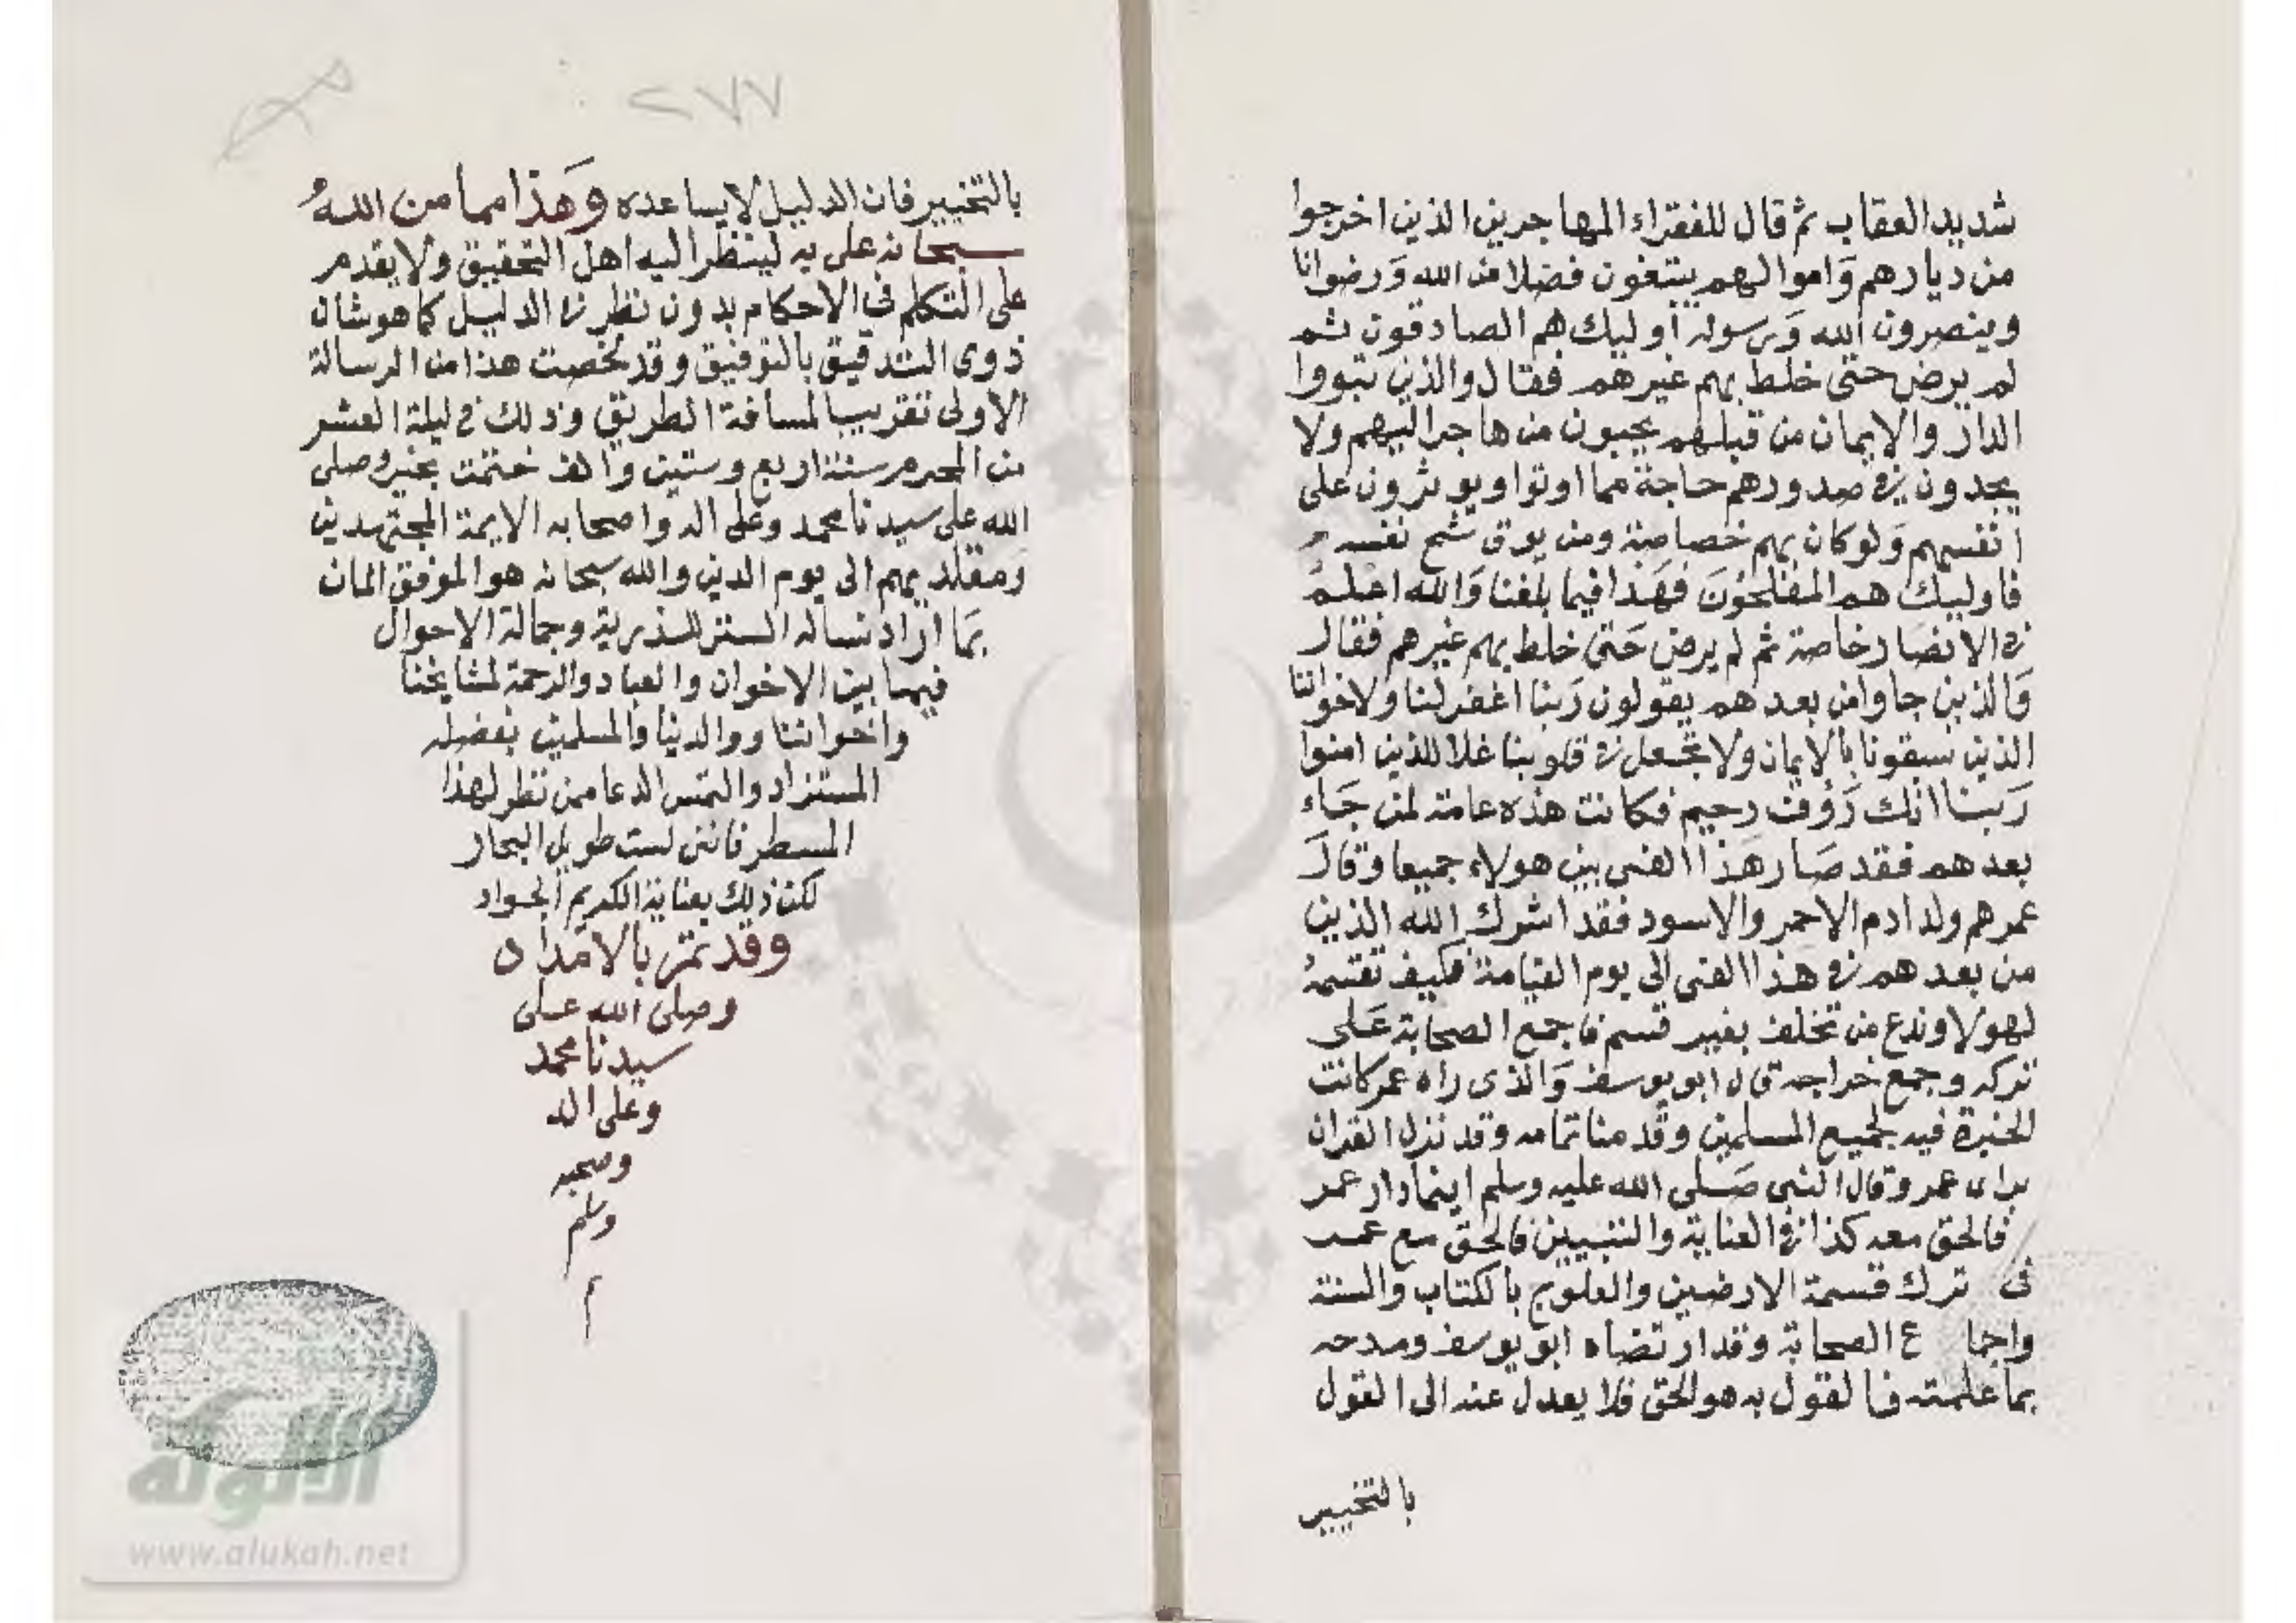 شديد العقاب ثم قال للفقراء المهاجرين الذين اخرجوا
من ديارهم وَاموالهم يبتغون فضلا من الله وَرضوانا
وينصرون الله وَرسوله أوليك هم الصادقون ثم
لم يرض حتى خلط بهم غيرهم فقال والذين تبووا
الدار والايمان من قبلهم يحبون من هاجر اليهم ولا
يجدون في صدورهم حاجة مما اوتوا ويوثرون على
انفسهم وَلو كان بهم خصاصة ومن يوق شح نفسه
فاوليك هم المفلحونَ فهَذا فيما بلغنا وَالله اعلم
في الانصار خاصة ثم لم يرض حَتى خلط بهم غيرهم فقال
وَالذين جاوا من بعدهم يقولون رَبنا اغفر لنا ولاخواننا
الذين سبقونا بالايمان ولا تجعل في قلوبنا غلا للذين امنوا
رَبنا انك رَؤف رحيم فكانت هذه عامة لمن جَاء
بعدهم فقد صَار هَذا الفى بين هولاء جميعا وقالَ
عمر هم ولد ادم الاحمر والاسود فقد اشرك الله الذين
من بعدهم في هذا الفى الى يوم القيامة فكيف نقسمهُ
لهولا وندع من تخلف بغير قسم فاجمع الصحابة عَلى
تركه وجمع خراجه قال ابو يوسف وَالذى راه عمر كانت
الخيرة فيه لجميع المسلمين وقدمنا تمامه وقد نزل القران
براى عمر وقال النبى صَلى الله عليه وسلم اينما دار عمر
فالحق معه كذا في العناية والتبيين فالحق مع عمر
فى ترك قسمة الارضين والعلوج بالكتاب والسنة
واجماع الصحابة وقد ارتضاه ابو يوسف ومدحه
بما علمته فالقول به هو الحق فلا يعدل عنه الى القول
بالتخيير
٢٧٧
بالتخيير فان الدليل لا يساعده وَهَذا مما من اللهُ
سبحانه على به لينظر اليه اهل التحقيق ولا يقدم
على التكلم في الاحكام بدون نظر في الدليل كما هو شان
ذوى التدقيق بالتوفيق وقد لخصت هذا من الرسالة
الاولى تقريبا لمسافة الطريق وذلك في ليلة العشر
من المحرم سنة اربع وستين والف ختمت بخير وصلى
الله على سيدنا محمد وعلى اله واصحابه الايمة المجتهدين
وَمقلديهم الى يوم الدين والله سبحانه هو الموفق المان
بمَا اراد نساله الستر للذرية وجمالة الاحوال
فيما بين الاخوان والعباد والرحمة لمشايخنا
واخواننا ووالدينا والمسلمين بفضله
المستزاد والتمس الدعا ممن نظر لهذا
المسطر فاننى لست طويل النجار
لكن ذلك بعناية الكريم الجواد
وقد تمت بالامداد
وصلى الله على
سيدنا محمد
وعلى اله
وصحبه
وسلم
م
الألوكة
www.alukah.net